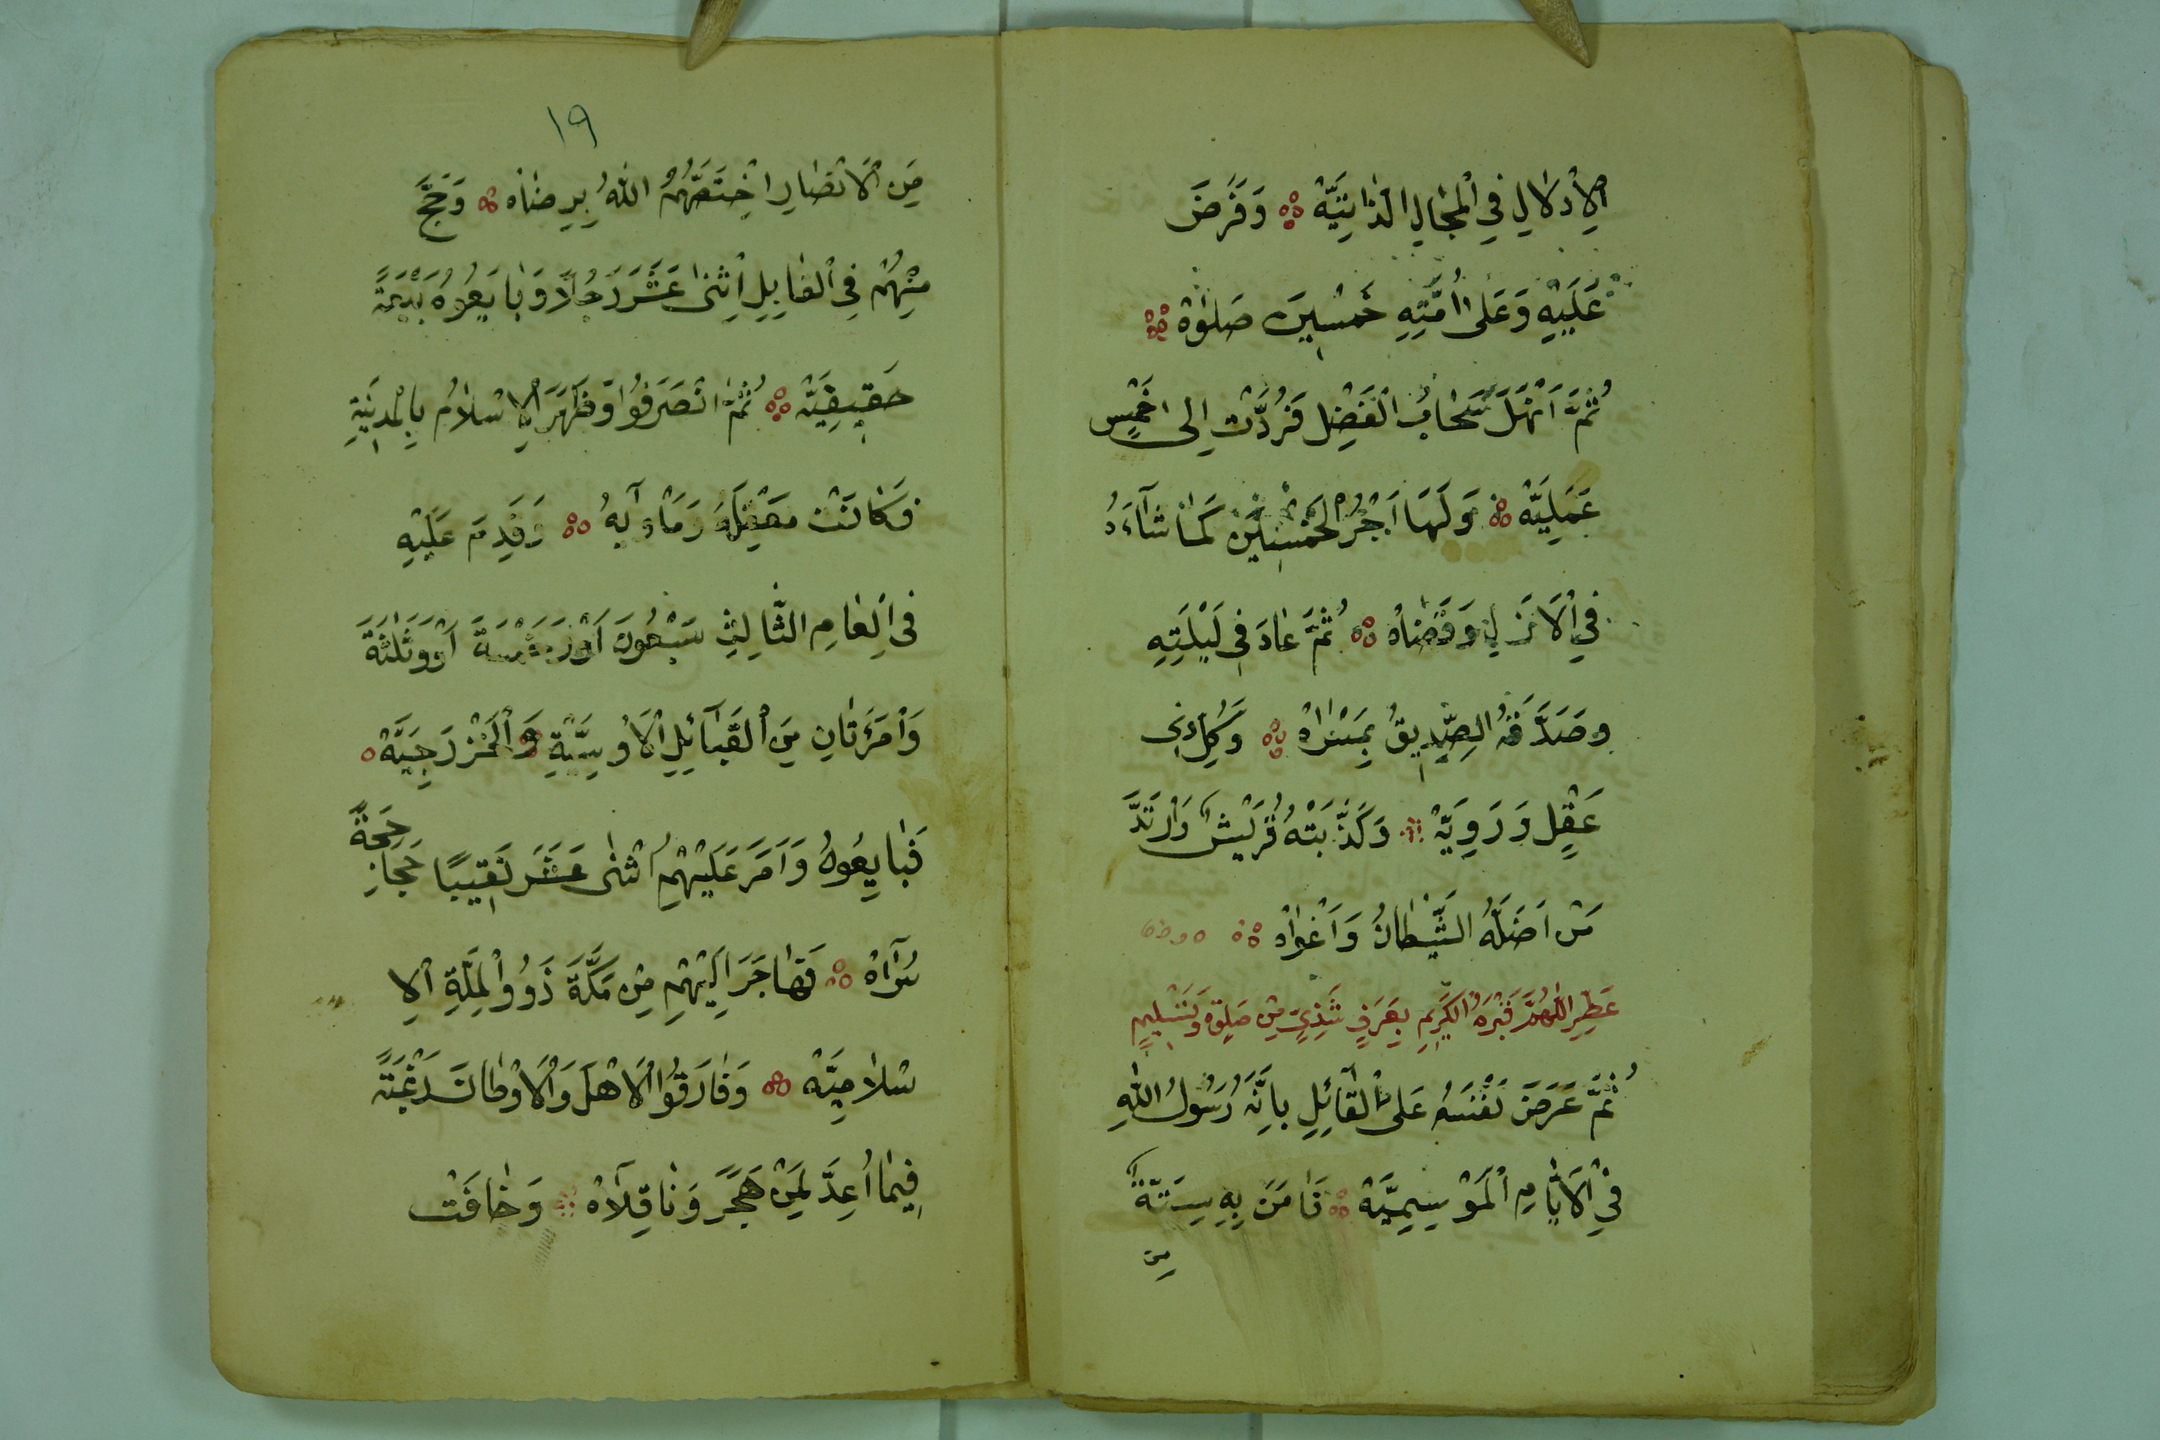 الْاِدْلَالِ فِي الْمَجَالِ الذَّاتِيَّهْ وَفَرَضَ
عَلَيْهِ وَعَلٰى اُمَّتِهِ خَمْسِينَ صَلٰوةْ
ثُمَّ اَنْهَلَ سَحَابُ الْفَضْلِ فَرُدَّتْ اِلٰى خَمْسٍ
عَمَلِيَّهْ وَلَهَا اَجْرُ الْخَمْسِينَ كَمَا شَآءَهُ
فِي الْاَزَلِ وَقَضَاهْ ثُمَّ عَادَ فِي لَيْلَتِهِ
وصَدَّقَهُ الصِّدِّيقُ بِمَسْرَاهْ وَكُلُّ ذِى
عَقْلٍ وَرَوِيَّهْ وَكَذَّبَتْهُ قُرَيْشٌ وَارْتَدَّ
مَنْ اَضَلَّهُ الشَّيْطَانُ وَاَغْوَاهْ
عَطِّرِ اللّٰهُمَّ قَبْرَهُ الْكَرِيمِ بِعَرْفٍ شَذِيٍّ مِنْ صَلٰوةٍ وَتَسْلِيمٍ
ثُمَّ عَرَضَ نَفْسَهُ عَلَى الْقَآئِلِ بِاَنَّهُ رَسُولُ اللّٰهِ
فِي الْاَيَّامِ الْمَوْسِمِيَّهْ فَاٰمَنَ بِهِ سِتَّةٌ
مِنَ
١٩
مِنَ الْاَنْصَارِ اخْتَصَّهُمُ اللّٰهُ بِرِضَاهْ وَحَجَّ
مِنْهُمْ فِي الْقَابِلِ اِثْنٰى عَشَرَ رَجُلًا وَبَايَعُوهُ بَيْعَةً
حَقِيقِيَّهْ ثُمَّ انْصَرَفُوا وَظَهَرَ الْاِسْلَامُ بِالْمَدِينَةِ
فَكَانَتْ مَعْقِلَهُ وَمَاْوَاهُ وَقَدِمَ عَلَيْهِ
فِى الْعَامِ الثَّالِثِ سَبْعُونَ اَوْ وَخَمْسَةَ اَوْ وَثَلٰثَةَ
وَامْرَئَتَانِ مِنَ الْقَبَآئِلِ الْاَوْسِيَّةِ وَالْخَزْرَجِيَّهْ
فَبَايَعُوهُ وَاَمَرَ عَلَيْهِمْ اثْنٰى عَشَرَ نَقِيبًا حَجَازِ
حَجَّةً
سُرَآاهْ فَهَاجَرَ اِلَيْهِمْ مِنْ مَكَّةَ ذَوُوا لْمِلَّةِ الْاِ
سْلَامِيَّهْ وَفَارَقُوا الْاَهْلَ وَالْاَوْطَانَ رَغْبَةً
فِيمَا اُعِدَّ لِمَنْ هَجَرَ وَنَاقِلَاهْ وَخَافَتْ